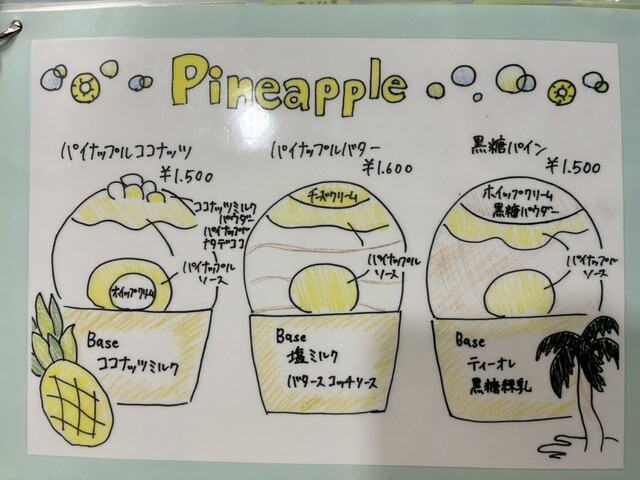 Pineapple
パイナップルココナッツ
¥1.500
ココナッツミルク
パウダー
パイナップル
ナタデココ
パイナップル
ソース
ホイップクリーム
Base
ココナッツミルク
パイナップルバター
¥1.600
チーズクリーム
パイナップル
ソース
Base
塩ミルク
バタースコッチソース
黒糖パイン
¥1.500
ホイップクリーム
黒糖パウダー
パイナップル
ソース
Base
ティーオレ
黒糖練乳